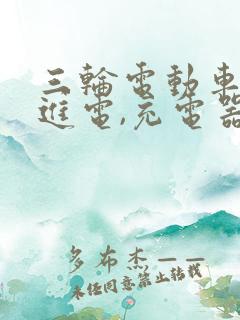 三輪電動車
進電,充電器
多布杰——
未任同意禁止转载